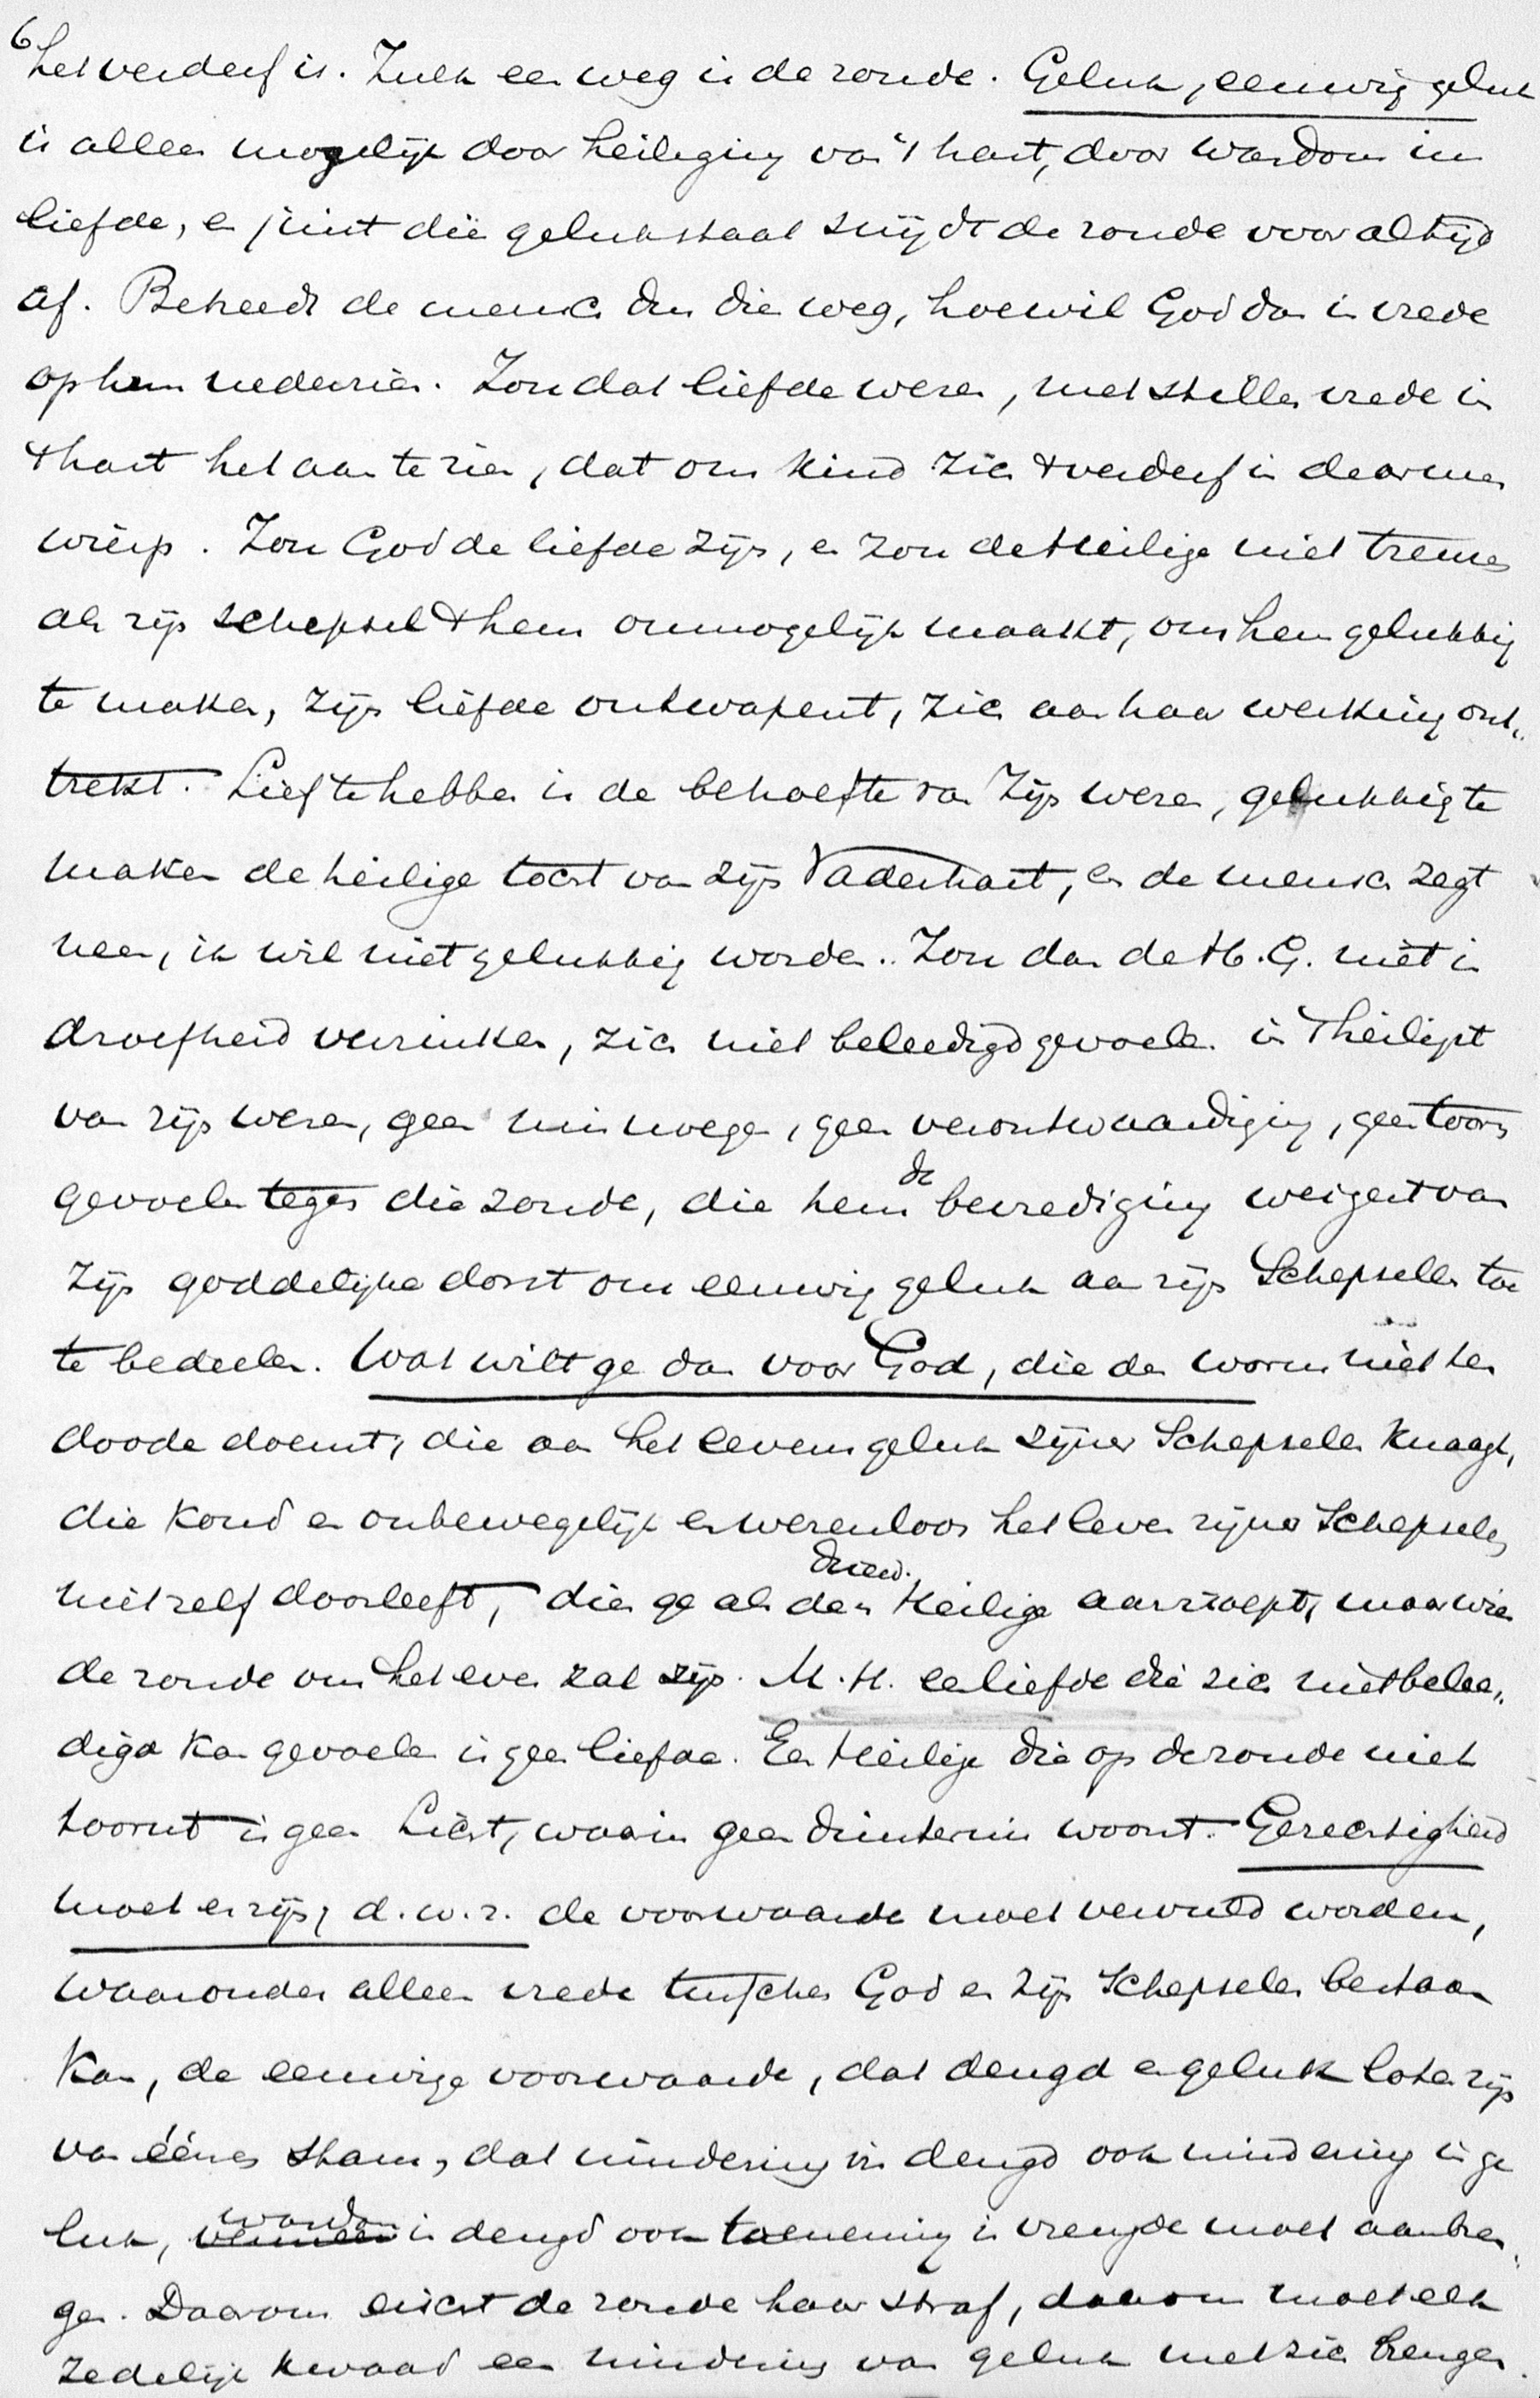 6
het verderf is. Zulk een weg is de zonde. Geluk, eeuwig geluk
is alleen mogelijk door heiliging van 't hart, door wasdom in
liefde, en juist die gelukstaat snijdt de zonde voor altijd
af. Betreedt de mensch dan dien weg, hoe wil God dan in vrede
op hem nederzien. Zou dat liefde wezen, met stillen vrede in
't hart het aan te zien, dat ons kind zich 't verderf in de armen
wierp. Zou God de liefde zijn, en zou de Heilige niet treuren
als zijn schepsel 't hem onmogelijk maakt, om hem gelukkig
te maken, zijn liefde ontwapent, zich aan haar werking ont„
trekt. Lief te hebben is de behoefte van Zijn wezen, gelukkig te
maken de heilige tocht van zijn Vaderhart, en de mensch zegt
neen, ik wil niet gelukkig worden. Zou dan de H. G. niet in
droefheid verzinken, zich niet beleedigd gevoelen in 't heiligst
van zijn wezen, geen misnoegen, geen verontwaardiging, geen toorn
gevoelen tegen die zonde, die hem de bevrediging weigert van
zijn goddelijke dorst om eeuwig geluk aan zijn Schepselen toe
te bedeelen. Wat wilt ge dan voor God, die den worm niet ten
doode doemt, die aan het levensgeluk zijner Schepselen knaagt,
die koud en onbewegelijk en wezenloos het leven zijner Schepselen
niet zelf doorleeft, dien ge als den Heilige aanroept, maar wien
de zonde om het even zal zijn. M. H. een liefde die zich niet belee„
digd kan gevoelen is geen liefde. Een Heilige die op de zonde niet
toornt is geen Licht, waarin geen duisternis woont. Gerechtigheid
moet er zijn, d. w. z. de voorwaarde moet vervuld worden,
waaronder alleen vrede tusschen God en zijn Schepselen bestaan
kan, de eeuwige voorwaarde, dat deugd en geluk loten zijn
van éénen stam, dat mindering in deugd ook mindering in ge
luk, wasdom in deugd ook toeneming in vreugde moet aanbren„
gen. Daarom eischt de zonde haar straf, daarom moet elk
zedelijk kwaad een mindering van geluk met zich brengen.